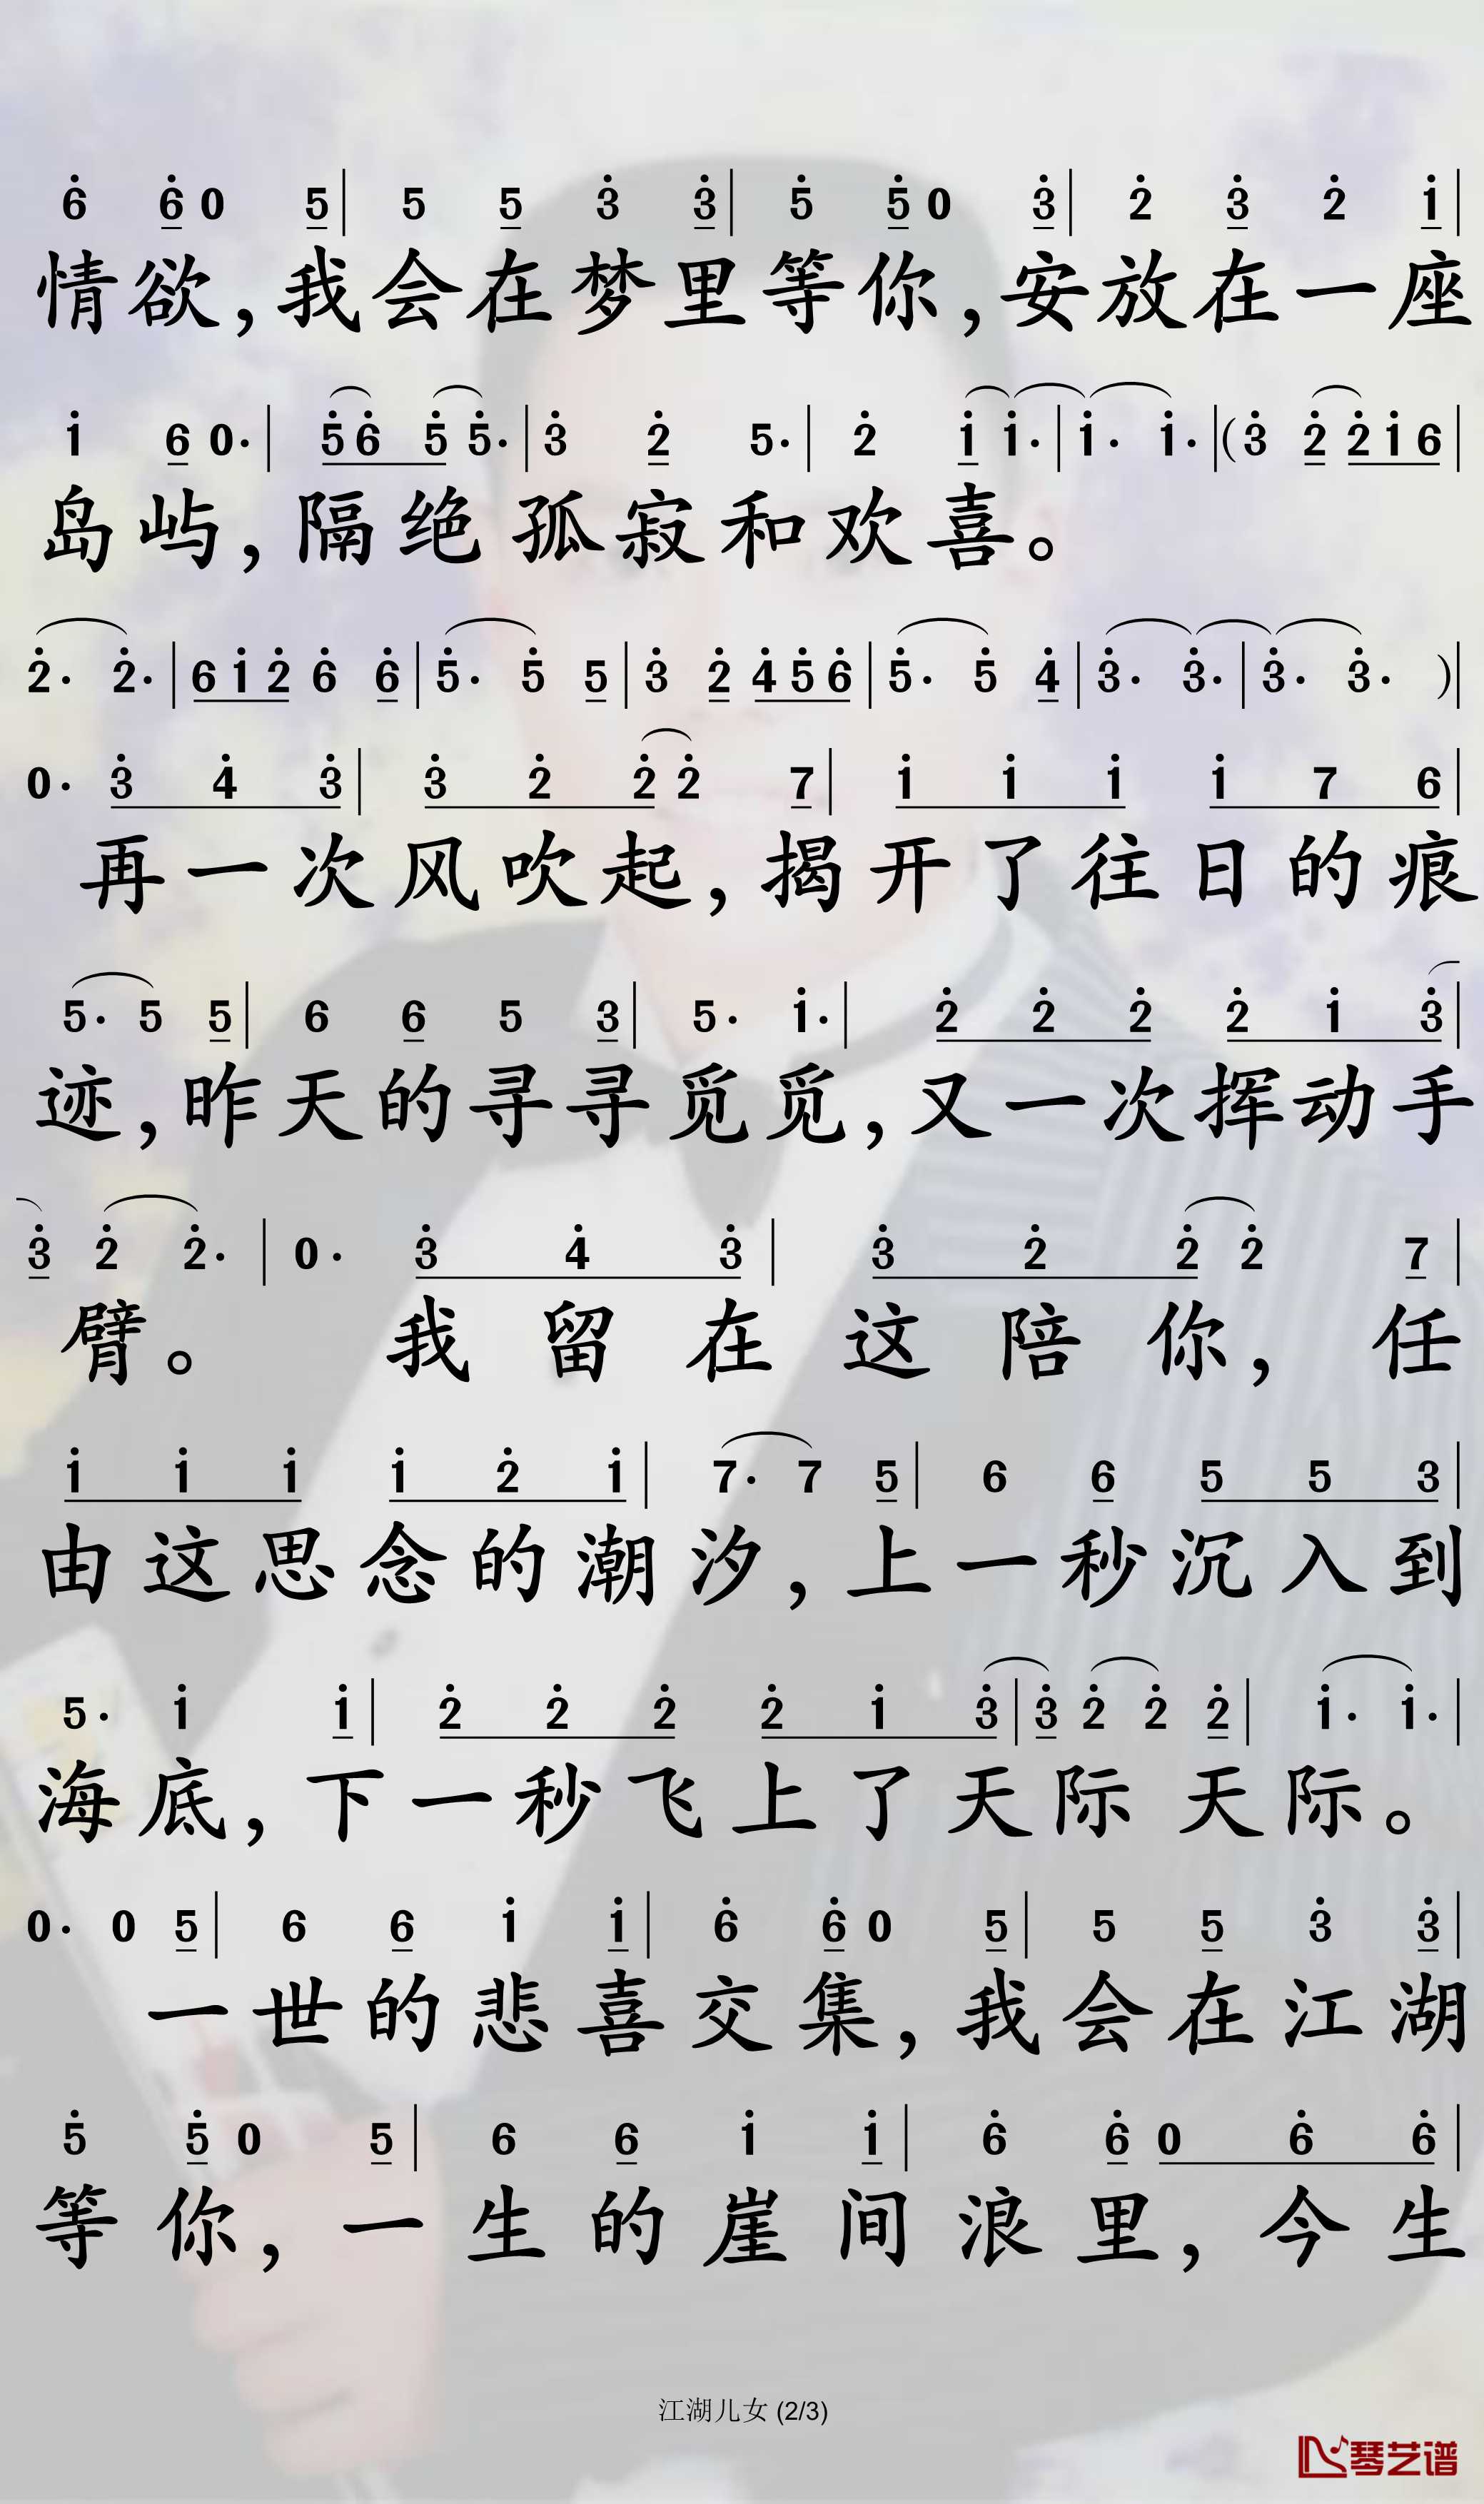 6̇ 6̇ 0 5 | 5 5 3̇ 3̇ | 5̇ 5̇ 0 3̇ | 2̇ 3̇ 2̇ 1̇ |
情欲,我会在梦里等你,安放在一座
1̇ 6 0· | 5̇ 6̇ 5̇ 5̇· | 3̇ 2̇ 5· | 2̇ 1̇ 1̇· | 1̇· 1̇· | (3̇ 2̇ 2̇ 1̇ 6 |
岛屿,隔绝孤寂和欢喜。
2̇· 2̇· | 6 1̇ 2̇ 6̇ 6̇ | 5̇· 5̇ 5 | 3̇ 2̇ 4̇ 5̇ 6̇ | 5̇· 5̇ 4̇ | 3̇· 3̇· | 3̇· 3̇· )|
0· 3̇ 4̇ 3̇ | 3̇ 2̇ 2̇ 2̇ 7 | 1̇ 1̇ 1̇ 1̇ 7 6 |
再一次风吹起,揭开了往日的痕
5· 5 5 | 6 6 5 3 | 5· 1̇· | 2̇ 2̇ 2̇ 2̇ 1̇ 3̇ |
迹,昨天的寻寻觅觅,又一次挥动手
3̇ 2̇ 2̇· | 0· 3̇ 4̇ 3̇ | 3̇ 2̇ 2̇ 2̇ 7 |
臂。 我留在这陪你,任
1̇ 1̇ 1̇ 1̇ 2̇ 1̇ | 7· 7 5 | 6 6 5 5 3 |
由这思念的潮汐,上一秒沉入到
5· 1̇ 1̇ | 2̇ 2̇ 2̇ 2̇ 1̇ 3̇ | 3̇ 2̇ 2̇ 2̇ | 1̇· 1̇· |
海底,下一秒飞上了天际天际。
0· 0 5 | 6 6 1̇ 1̇ | 6̇ 6̇ 0 5 | 5 5 3̇ 3̇ |
一世的悲喜交集,我会在江湖
5̇ 5̇ 0 5 | 6 6 1̇ 1̇ | 6̇ 6̇ 0 6̇ 6̇ |
等你,一生的崖间浪里,今生
江湖儿女 (2/3)
琴艺谱